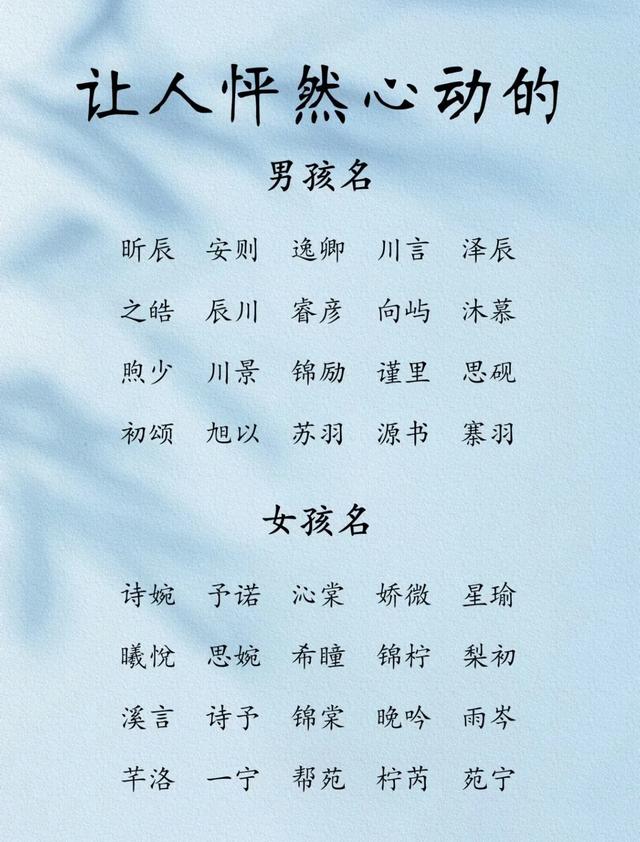 让人怦然心动的
男孩名
昕辰 安则 逸卿 川言 泽辰
之皓 辰川 睿彦 向屿 沐慕
煦少 川景 锦励 谨里 思砚
初颂 旭以 苏羽 源书 寨羽
女孩名
诗婉 予诺 沁棠 娇微 星瑜
曦悦 思婉 希瞳 锦柠 梨初
溪言 诗予 锦棠 晚吟 雨岑
芊洛 一宁 帮苑 柠芮 苑宁